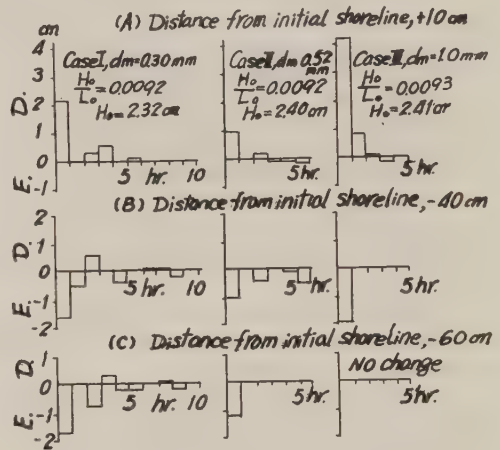 (A) Distance from initial shoreline, +10 cm
cm
4
3
2
1
0
-1
D.
E.
Case I, dm=0.30 mm
Ho/Lo = 0.0092
Ho=2.32 cm
5 hr. 10
Case II, dm 0.52 mm
Ho/Lo = 0.0092
Ho=2.40 cm
5 hr
Case III, dm=1.0 mm
Ho/Lo = 0.0093
Ho=2.41 cr
5 hr
(B) Distance from initial shoreline, -40 cm
2
1
0
-1
-2
D.
E.
5 hr. 10
5 hr.
5 hr.
(C) Distance from initial shoreline, -60 cm
1
0
-1
-2
D.
E.
5 hr. 10
5 hr.
No change
5 hr.